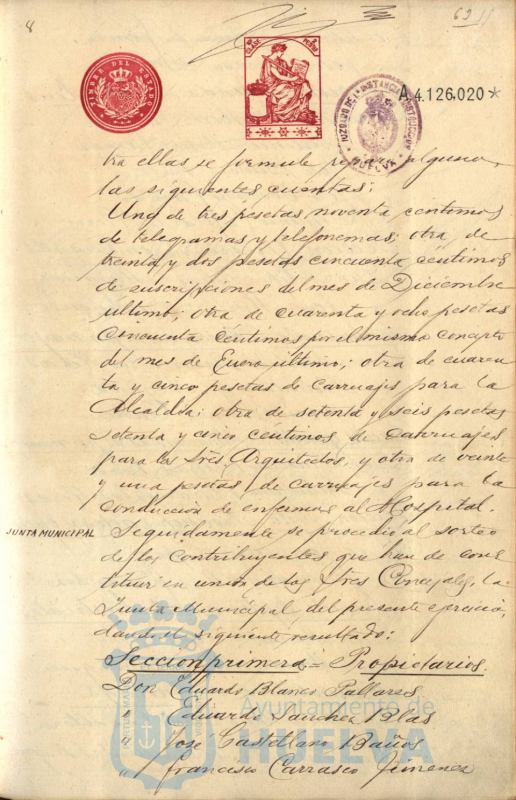 8
69
TIMBRE DEL ESTADO
CLASE
A 4.126.020*
JUZGADO DE 1ª INSTANCIA
HUELVA
tra ellas se formule reparo alguno,
las siguientes cuentas:
Una de tres pesetas noventa centimos
de telegramas y telefonemas; otra de
treinta y dos pesetas cincuenta céntimos
de suscripciones del mes de Diciembre
último; otra de cuarenta y ocho pesetas
cincuenta céntimos por el mismo concepto
del mes de Enero último; otra de cuaren
ta y cinco pesetas de carruajes para la
Alcaldia: otra de setenta y seis pesetas
setenta y cinco céntimos de carruajes
para los Sres Arquitectos, y otra de veinte
y una pesetas de carruajes para la
conducción de enfermos al Hospital.
JUNTA MUNICIPAL
Seguidamente se procedió al sorteo
de los contribuyentes que han de cons
tituir en union de los Sres Concejales, la
Junta Municipal del presente ejercicio,
dando el siguiente resultado:
Seccion primera = Propietarios.
Don Eduardo Blanco Pallares
" Eduardo Sanchez Blas
" José Castellano Baños
" Francisco Carrasco Jimenez
Ayuntamiento de
HUELVA